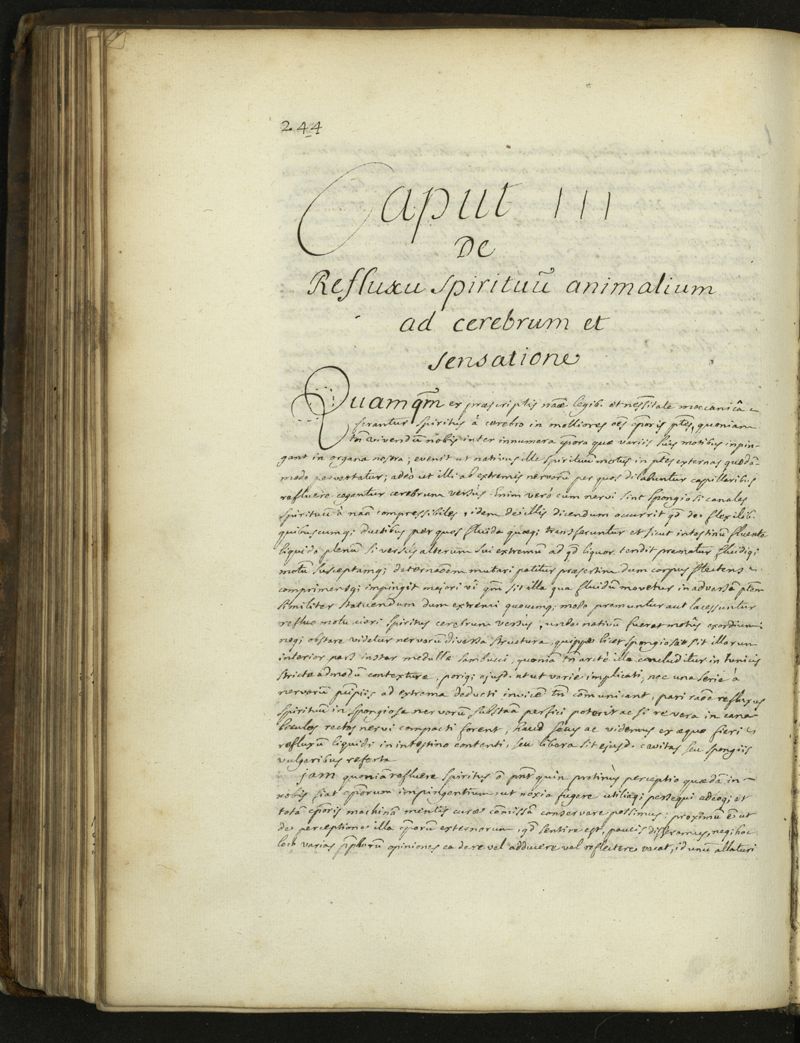 244
Caput III
De
Refluxu spirituũ animalium
ad cerebrum et
sensatione
Quamqm̃ ex præscriptis naæ legib. et necssitate meccanicâ
ferantur spiritus à cerebro in molliores oẽs cporis ptes, quoniam
tñ vivendũ nobis inter innumera cpora quæ variis suis motibus inpin-
gant in organa nostra; evenit ut nativus ille spirituũ motus in ptes externas quodã-
modo pervertatur; adeò ut illi ab extremis nervorũ per quos dilabuntur capillaribus
refluere cogantur cerebrum versùs. Enim verò cùm nervi sint spongiosi canales
spirituũ à naâ compressibiles, idem de illis dicendum occurrit qd de flexilibi
quibuscumq; ductibus per quos fluida quæq; transferuntur et sicut intestinũ fluente
liquido plenũ si versùs alterum sui extremũ ad qd liquor tendit prematur fluidiq;
motu susceptamq; determãoem mutari patitur præsertim dum corpus flectens
comprimensq; impingit majori vi qm̃ sit illa qua fluidũ movetur in adversã ptem
similiter statuendum dum extremi quocumq; modo premuntur aut lacessuntur
refluo motu cieri spiritus cerebrum versùs, unde nativũ fuerat motûs exordium;
neq; obstare videtur nervorũ diversa structura, quippe licet spongiosa sit illorum
interior pars instar medullæ sambuci, quoniã tñ arctè illa concluditur in tunicis
strictæ admodũ contexturæ, poriq; ejusd. ut ut variè implicati, nec una serie à
nervorũ pcipiis ad extrema deducti invicẽ tñ cõmunicant, pari raõe refluxus
spirituũ in spongiosâ nervorũ substaâ perfici poterit ac si re vera in cana-
liculos rectos nervi compacti forent, haud secus ac videmus ex æquo fieri
refluxũ liquidi in intestino contenti, seu libera sit ejusd. cavitas seu spongiis
vulgaribus referta
jam quoniã refluere spiritus õ pnt quin protinùs perceptio quædã in
nobis fiat cporum impingentium, ut noxia fugere utiliaq; persequi adeoq; et
totã cporis machinã mentis curæ cõmissã conservare possimus; proximũ ẽ ut
de perceptione illa cporũ externorum, qd sentire est, paucis disseramus, neq; hoc
loco varias phorũ opiniones ea de re vel adducere vel reflectere vacat, id unũ allaturi